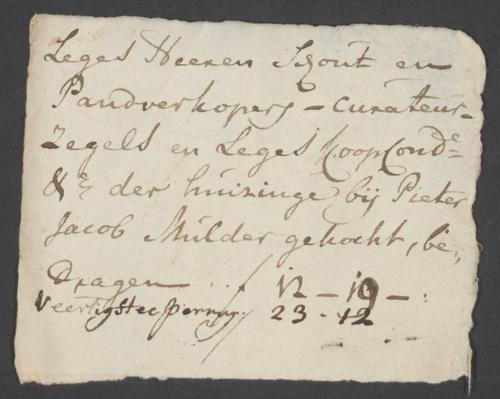 Leges Heeren Schout en
Pandverkopers - Curateur-
Zegels en Leges Koopconde
&c der huizinge bij Pieter
Jacob Mulder gekocht, be,
Dragen ... 12 - 19 - :
Veertigste penning. 23 - 12